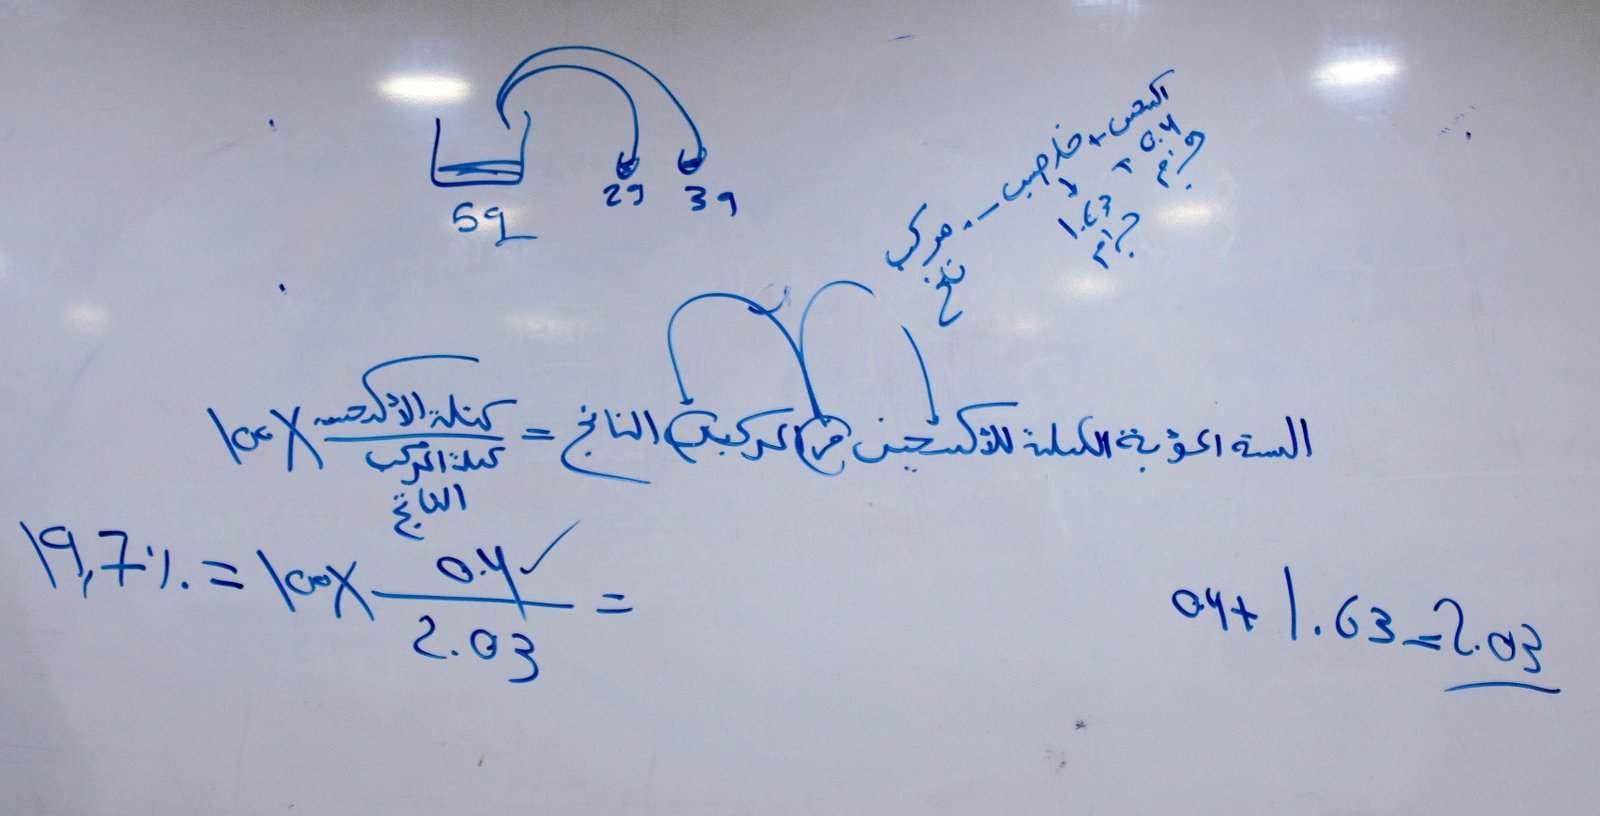 5g 2g 3g
اكسجين + خارصين → مركب
0.4 + 1.63 نتج
جرام جرام
النسبة المئوية الكتلية للأكسجين في المركب الناتج = كتلة الأكسجين / كتلة المركب الناتج × 100
= 0.4 / 2.03 × 100 = 19,7%
0.4 + 1.63 = 2.03